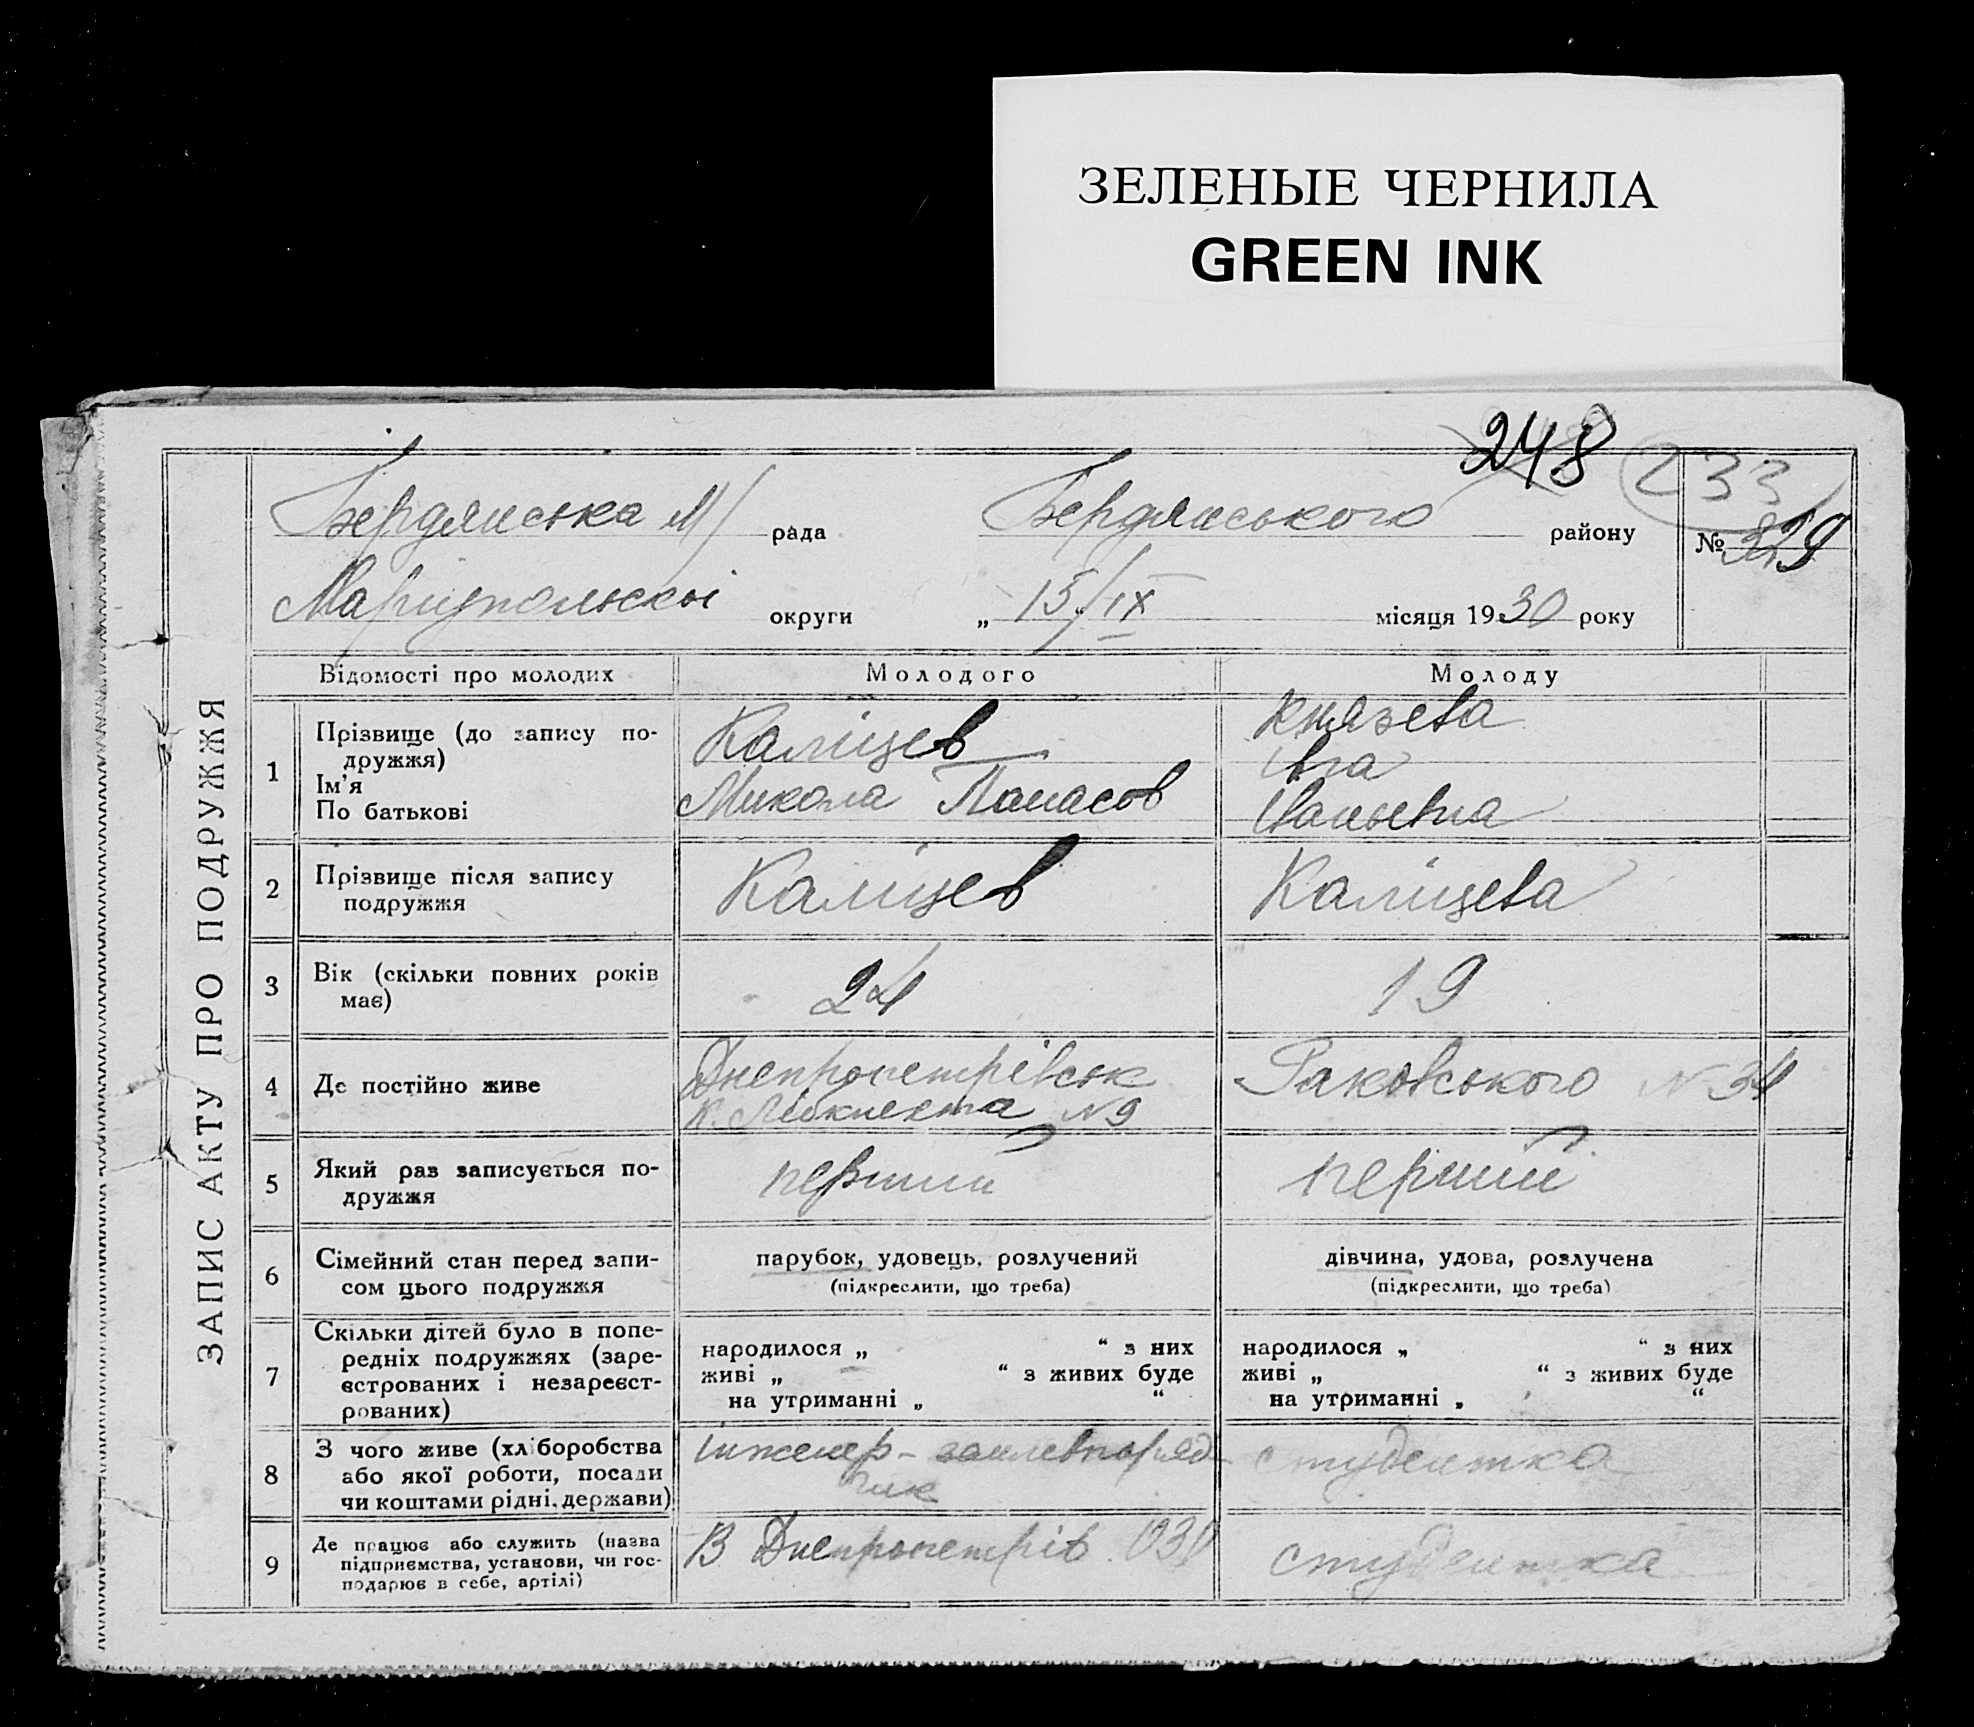 ЗЕЛЕНЫЕ ЧЕРНИЛА
GREEN INK
248
233
Бердянська М/ рада Бердянського району № 329
Маріупольскої округи „ 15/IX місяця 1930 року
ЗАПИС АКТУ ПРО ПОДРУЖЖЯ
Відомості про молодих Молодого Молоду
1 Прізвище (до запису по-
дружжя)
Ім'я
По батькові
Каліцев
Микола Панасов
Князева
Іванывна
2 Прізвище після запису
подружжя
Каліцев Каліцева
3 Вік (скільки повних років
має)
24 19
4 Де постійно живе
Днепропетрівськ
К. Лібкнехта N 9
Раковського N 34
5 Який раз записується по-
дружжя
первий перший
6 Сімейний стан перед запи-
сом цього подружжя
парубок, удовець, розлучений
(підкреслити, що треба)
дівчина, удова, розлучена
(підкреслити, що треба)
7 Скільки дітей було в попе-
редніх подружжях (заре-
єстрованих і незареєст-
рованих)
народилося „ “ з них
живі „ “ з живих буде
на утриманні „ “
народилося „ “ з них
живі „ “ з живих буде
на утриманні „ “
8 З чого живе (хліборобства
або якої роботи, посади
чи коштами рідні, держави)
інженер-землевпоряд-
ник
студентка
9 Де працює або служить (назва
підприємства, установи, чи гос-
подарює в себе, артілі)
В Днепропетрів.
студентка